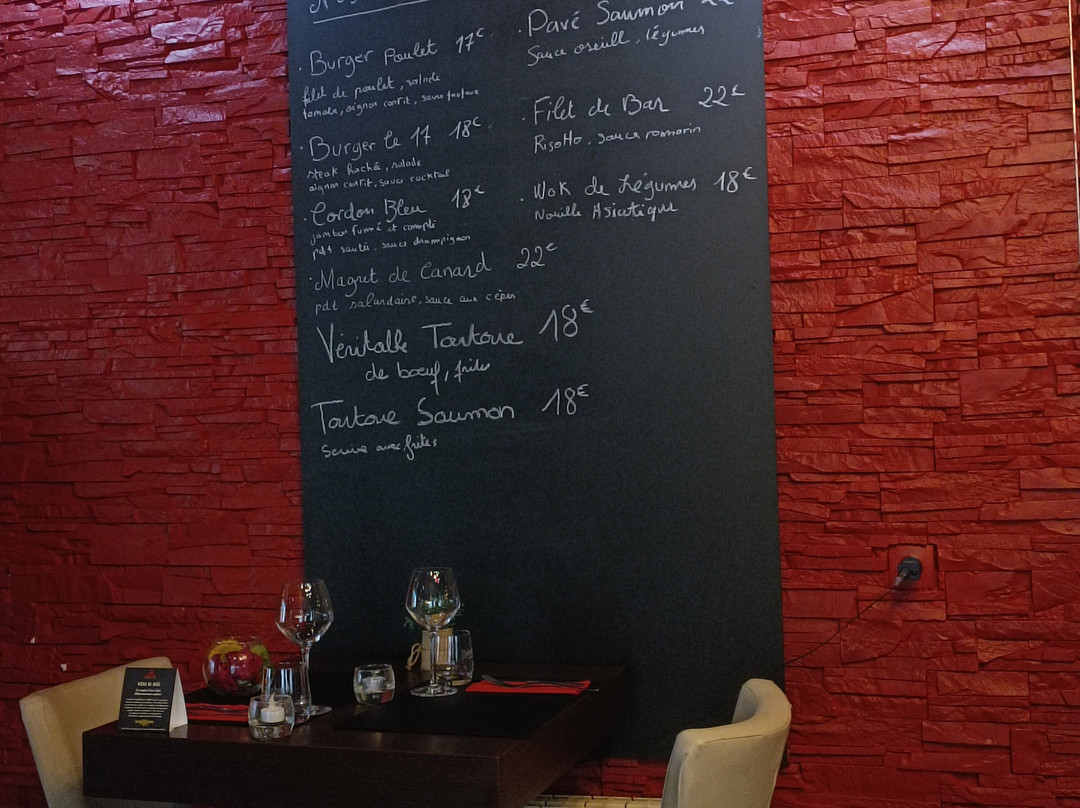 Burger Poulet 17€
filet de poulet, salade
tomate, oignon confit, sauce tartare
Burger le 17 18€
steak haché, salade
oignon confit, sauce cocktail
Cordon Bleu 18€
jambon fumé et compté
pdt sauté, sauce champignon
Magret de Canard 22€
pdt salardaise, sauce aux cèpes
Véritable Tartare 18€
de bœuf, frites
Tartare Saumon 18€
Servie avec frites
Pavé Saumon 22
Sauce oseill, légumes
Filet de Bar 22€
Risotto, sauce romarin
Wok de Légumes 18€
Nouille Asiatique
MENU DE NOËL